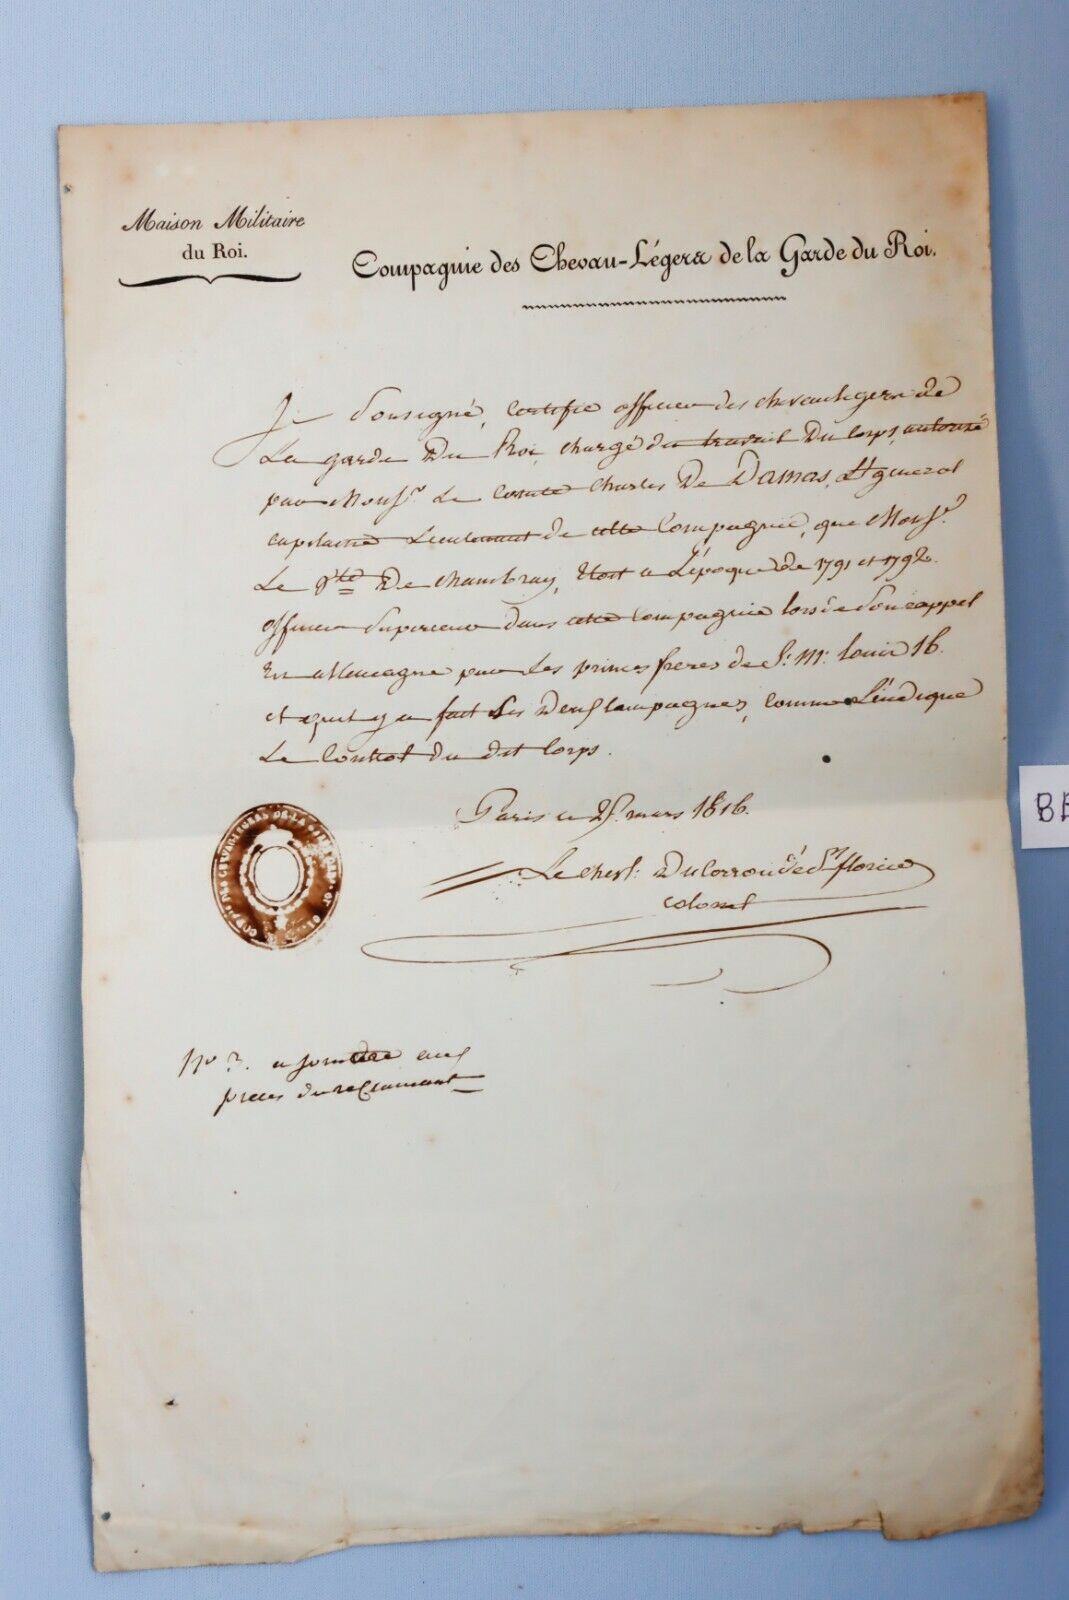 Maison Militaire
du Roi.
Compagnie des Chevau-Légers de la Garde du Roi.
Je Sousigné, Certifie officier des chevaulegers de
La garde Du Roi, chargé du travail Du Corps, autorisé
par Monsr. Le Comte Charles De Damas, Lt general
capitaine Lieutenant de cette Compagnie, que Monsr.
Le De Chambray, Etoit a L'époque de 1791 et 1792
officier Superieur dans cette Compagnie lors de Son rappel
En allemagne par Les princes freres de S. M. Louis 16.
et qu'il y a fait Les Deux Campagnes, comme L'indique
Le Control du dit Corps.
Paris ce mars 1816.
Le Chevr. de St florice
colonel
DE LA
No 3. a joindre aux
pieces du reclamant
BE